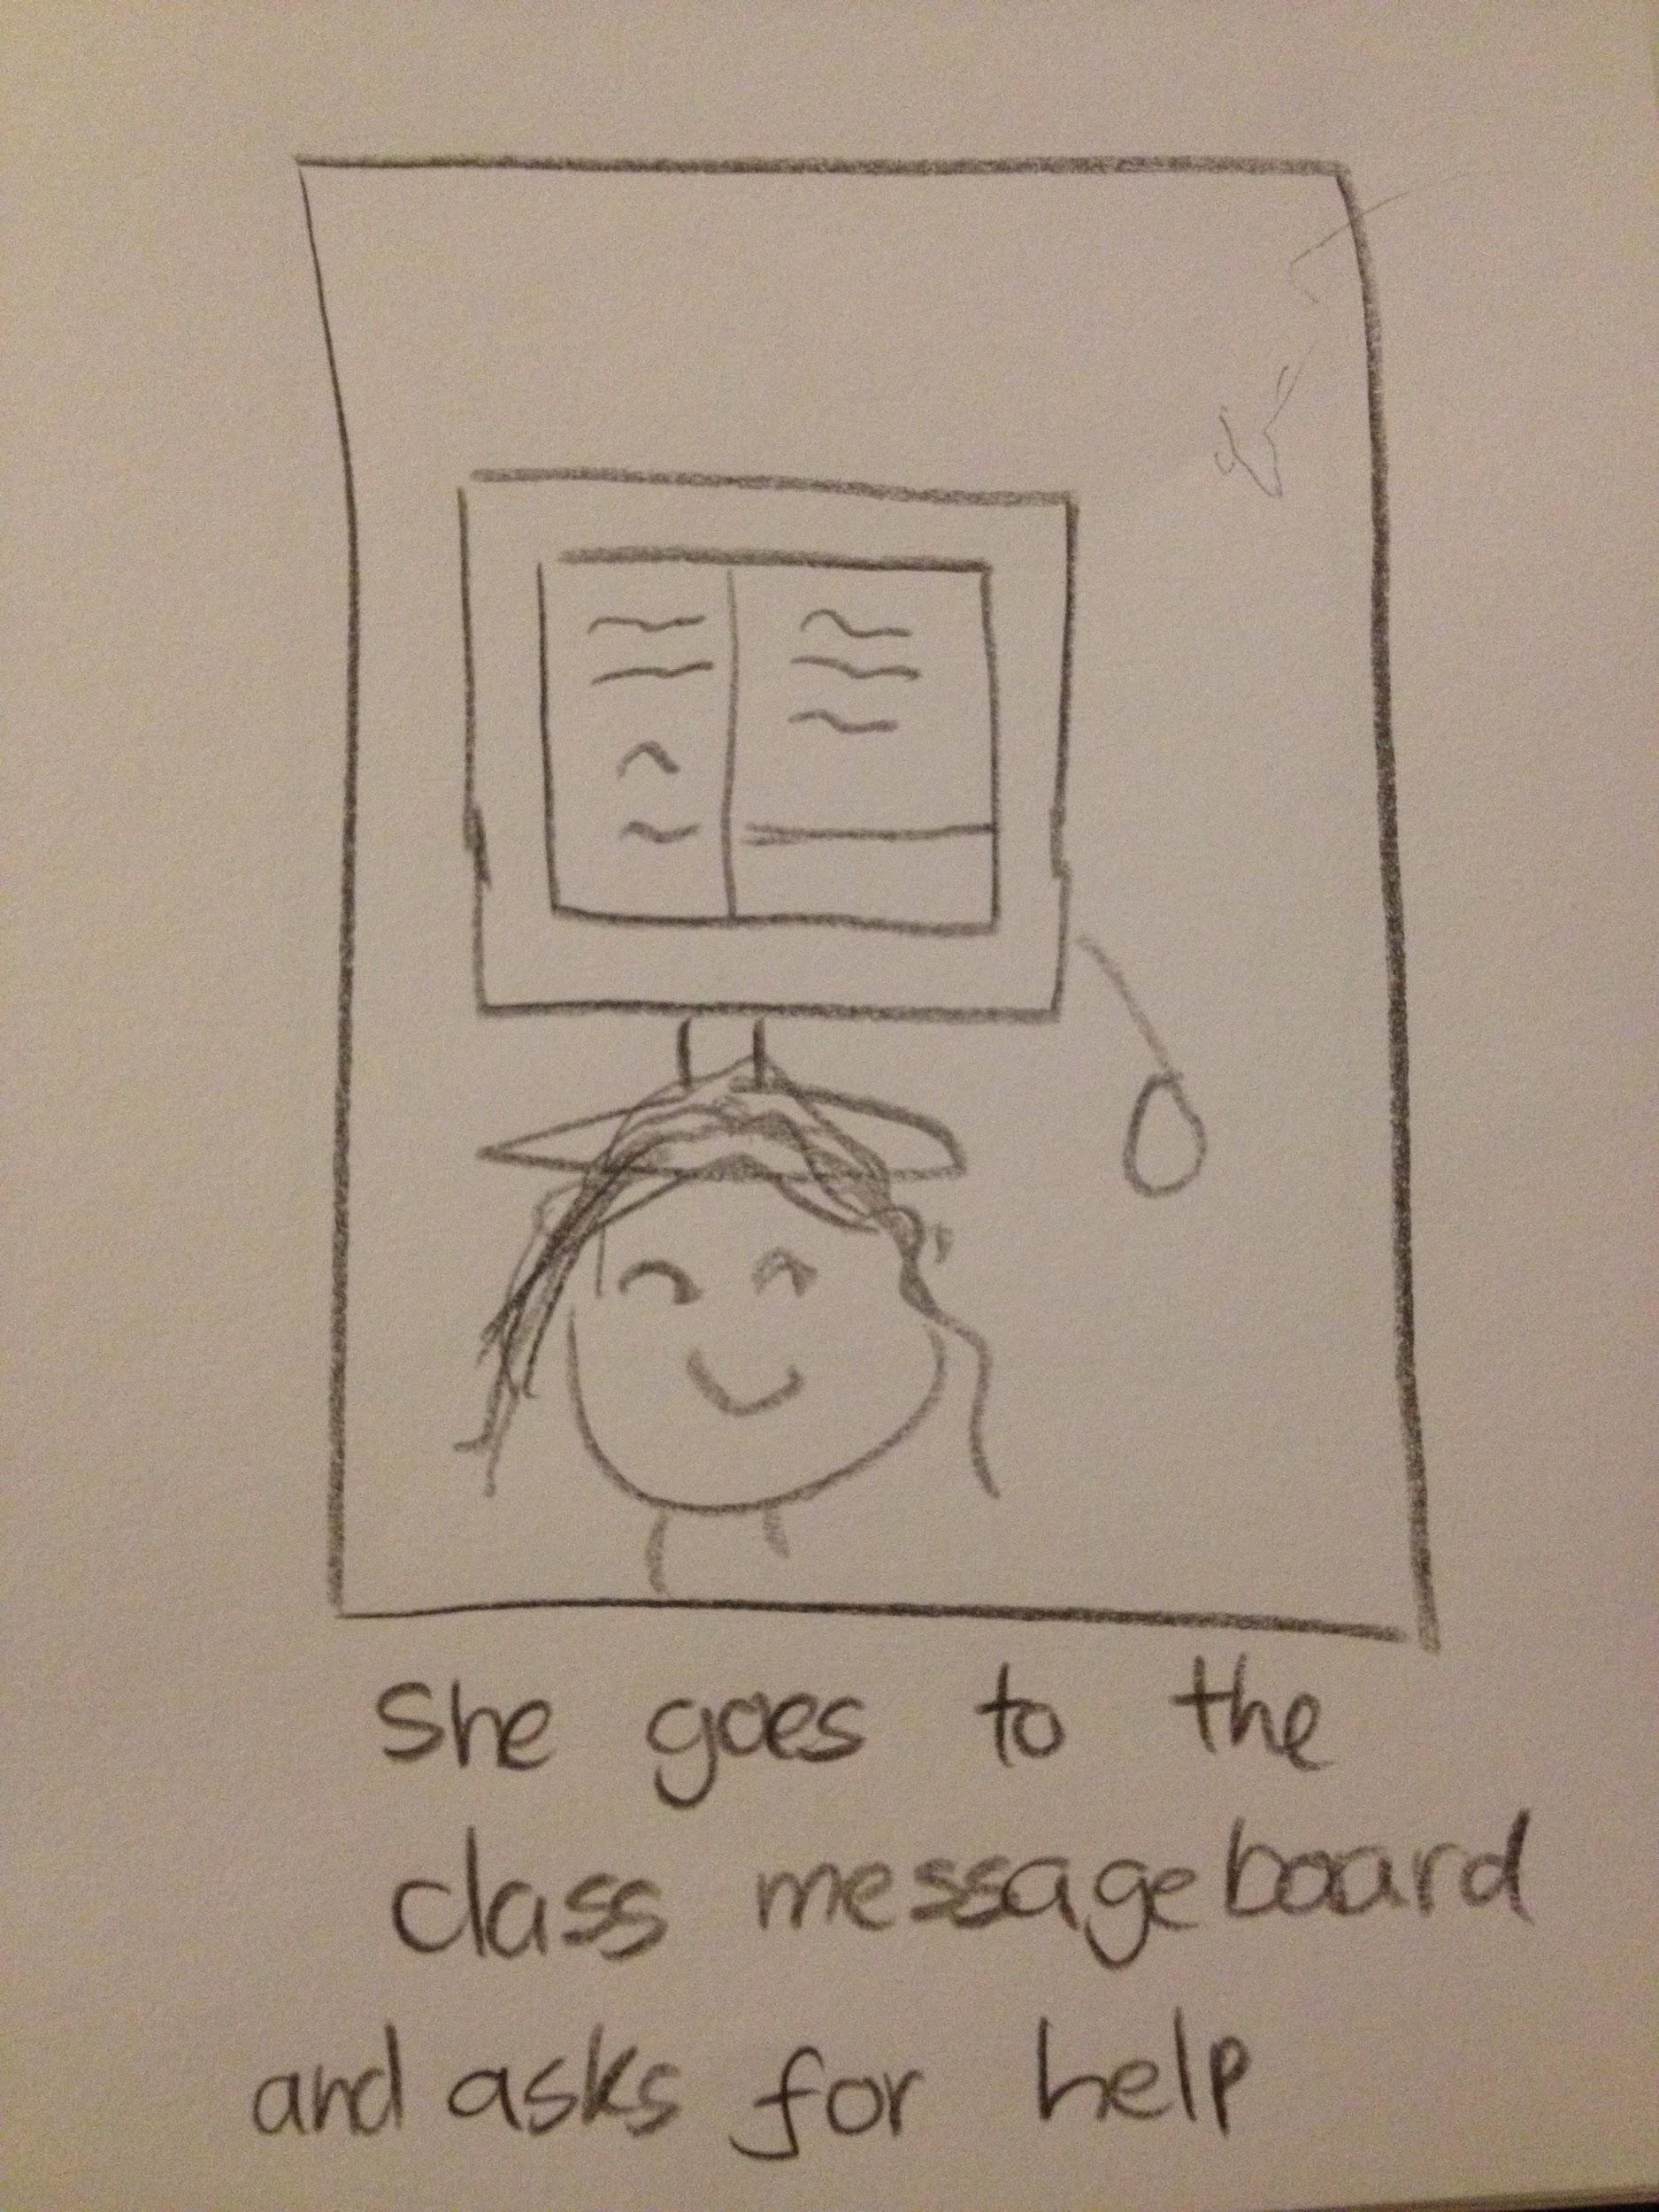 She goes to the
class messageboard
and asks for help